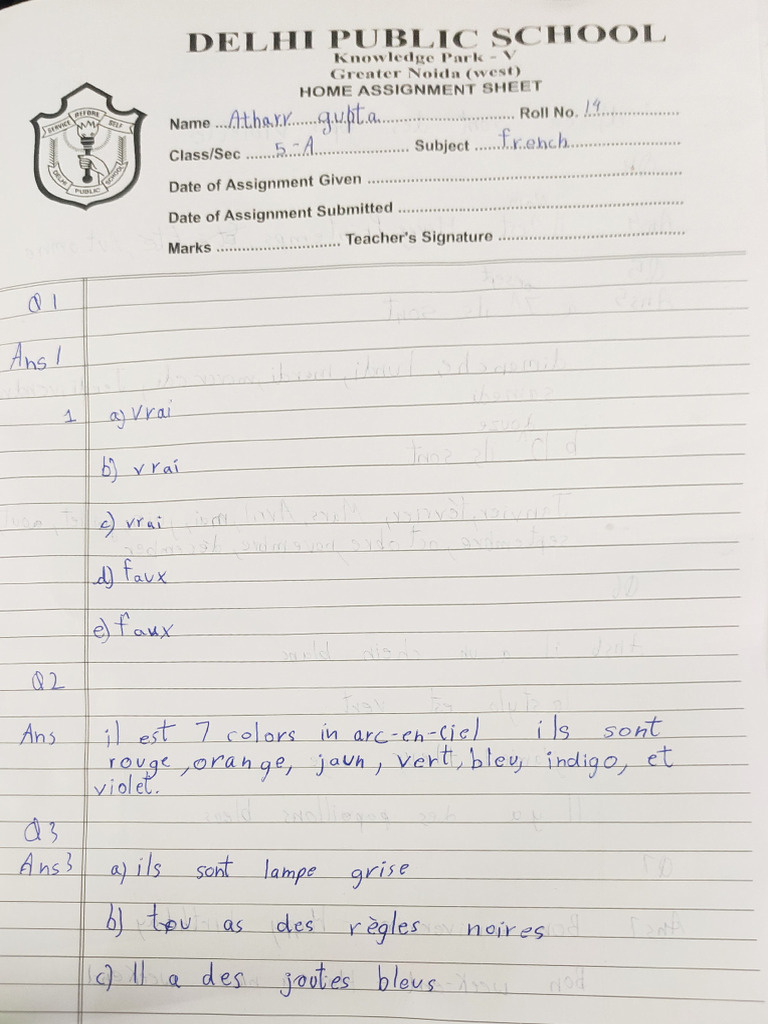 DELHI PUBLIC SCHOOL
Knowledge Park - V
Greater Noida (west)
HOME ASSIGNMENT SHEET
SERVICE BEFORE SELF
DELHI PUBLIC SCHOOL
Name ... Atharv gupta ... Roll No. 19
Class/Sec ... 5-A ... Subject ... french
Date of Assignment Given
Date of Assignment Submitted
Marks ... Teacher's Signature
Q1
Ans 1
1 a) vrai
b) vrai
c) vrai
d) faux
e) faux
Q2
Ans il est 7 colors in arc-en-ciel ils sont
rouge, orange, jaun, vert, bleu, indigo, et
violet.
Q3
Ans3 a) ils sont lampe grise
b) tu as des règles noires
c) Il a des joutes bleus